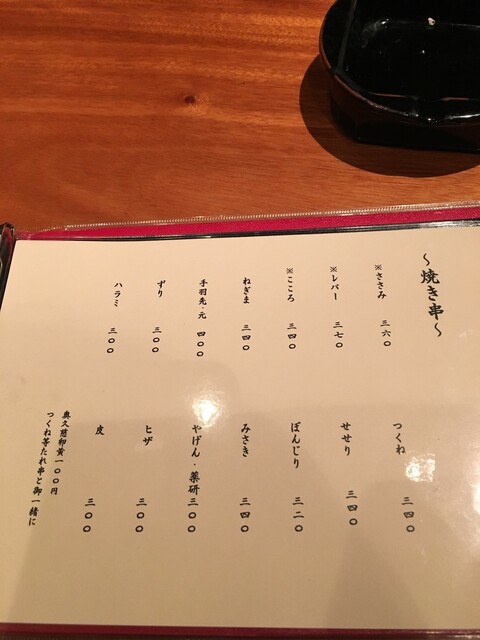 ～焼き串～
※ささみ 三六〇
※レバー 三七〇
※こころ 三四〇
ねぎま 三四〇
手羽先・元 四〇〇
ずり 三〇〇
ハラミ 三〇〇
つくね 三四〇
せせり 三四〇
ぼんじり 三二〇
みさき 三四〇
やげん・薬研 三〇〇
ヒザ 三〇〇
皮 三〇〇
奥久慈卵黄一〇〇円
つくね等たれ串と御一緒に